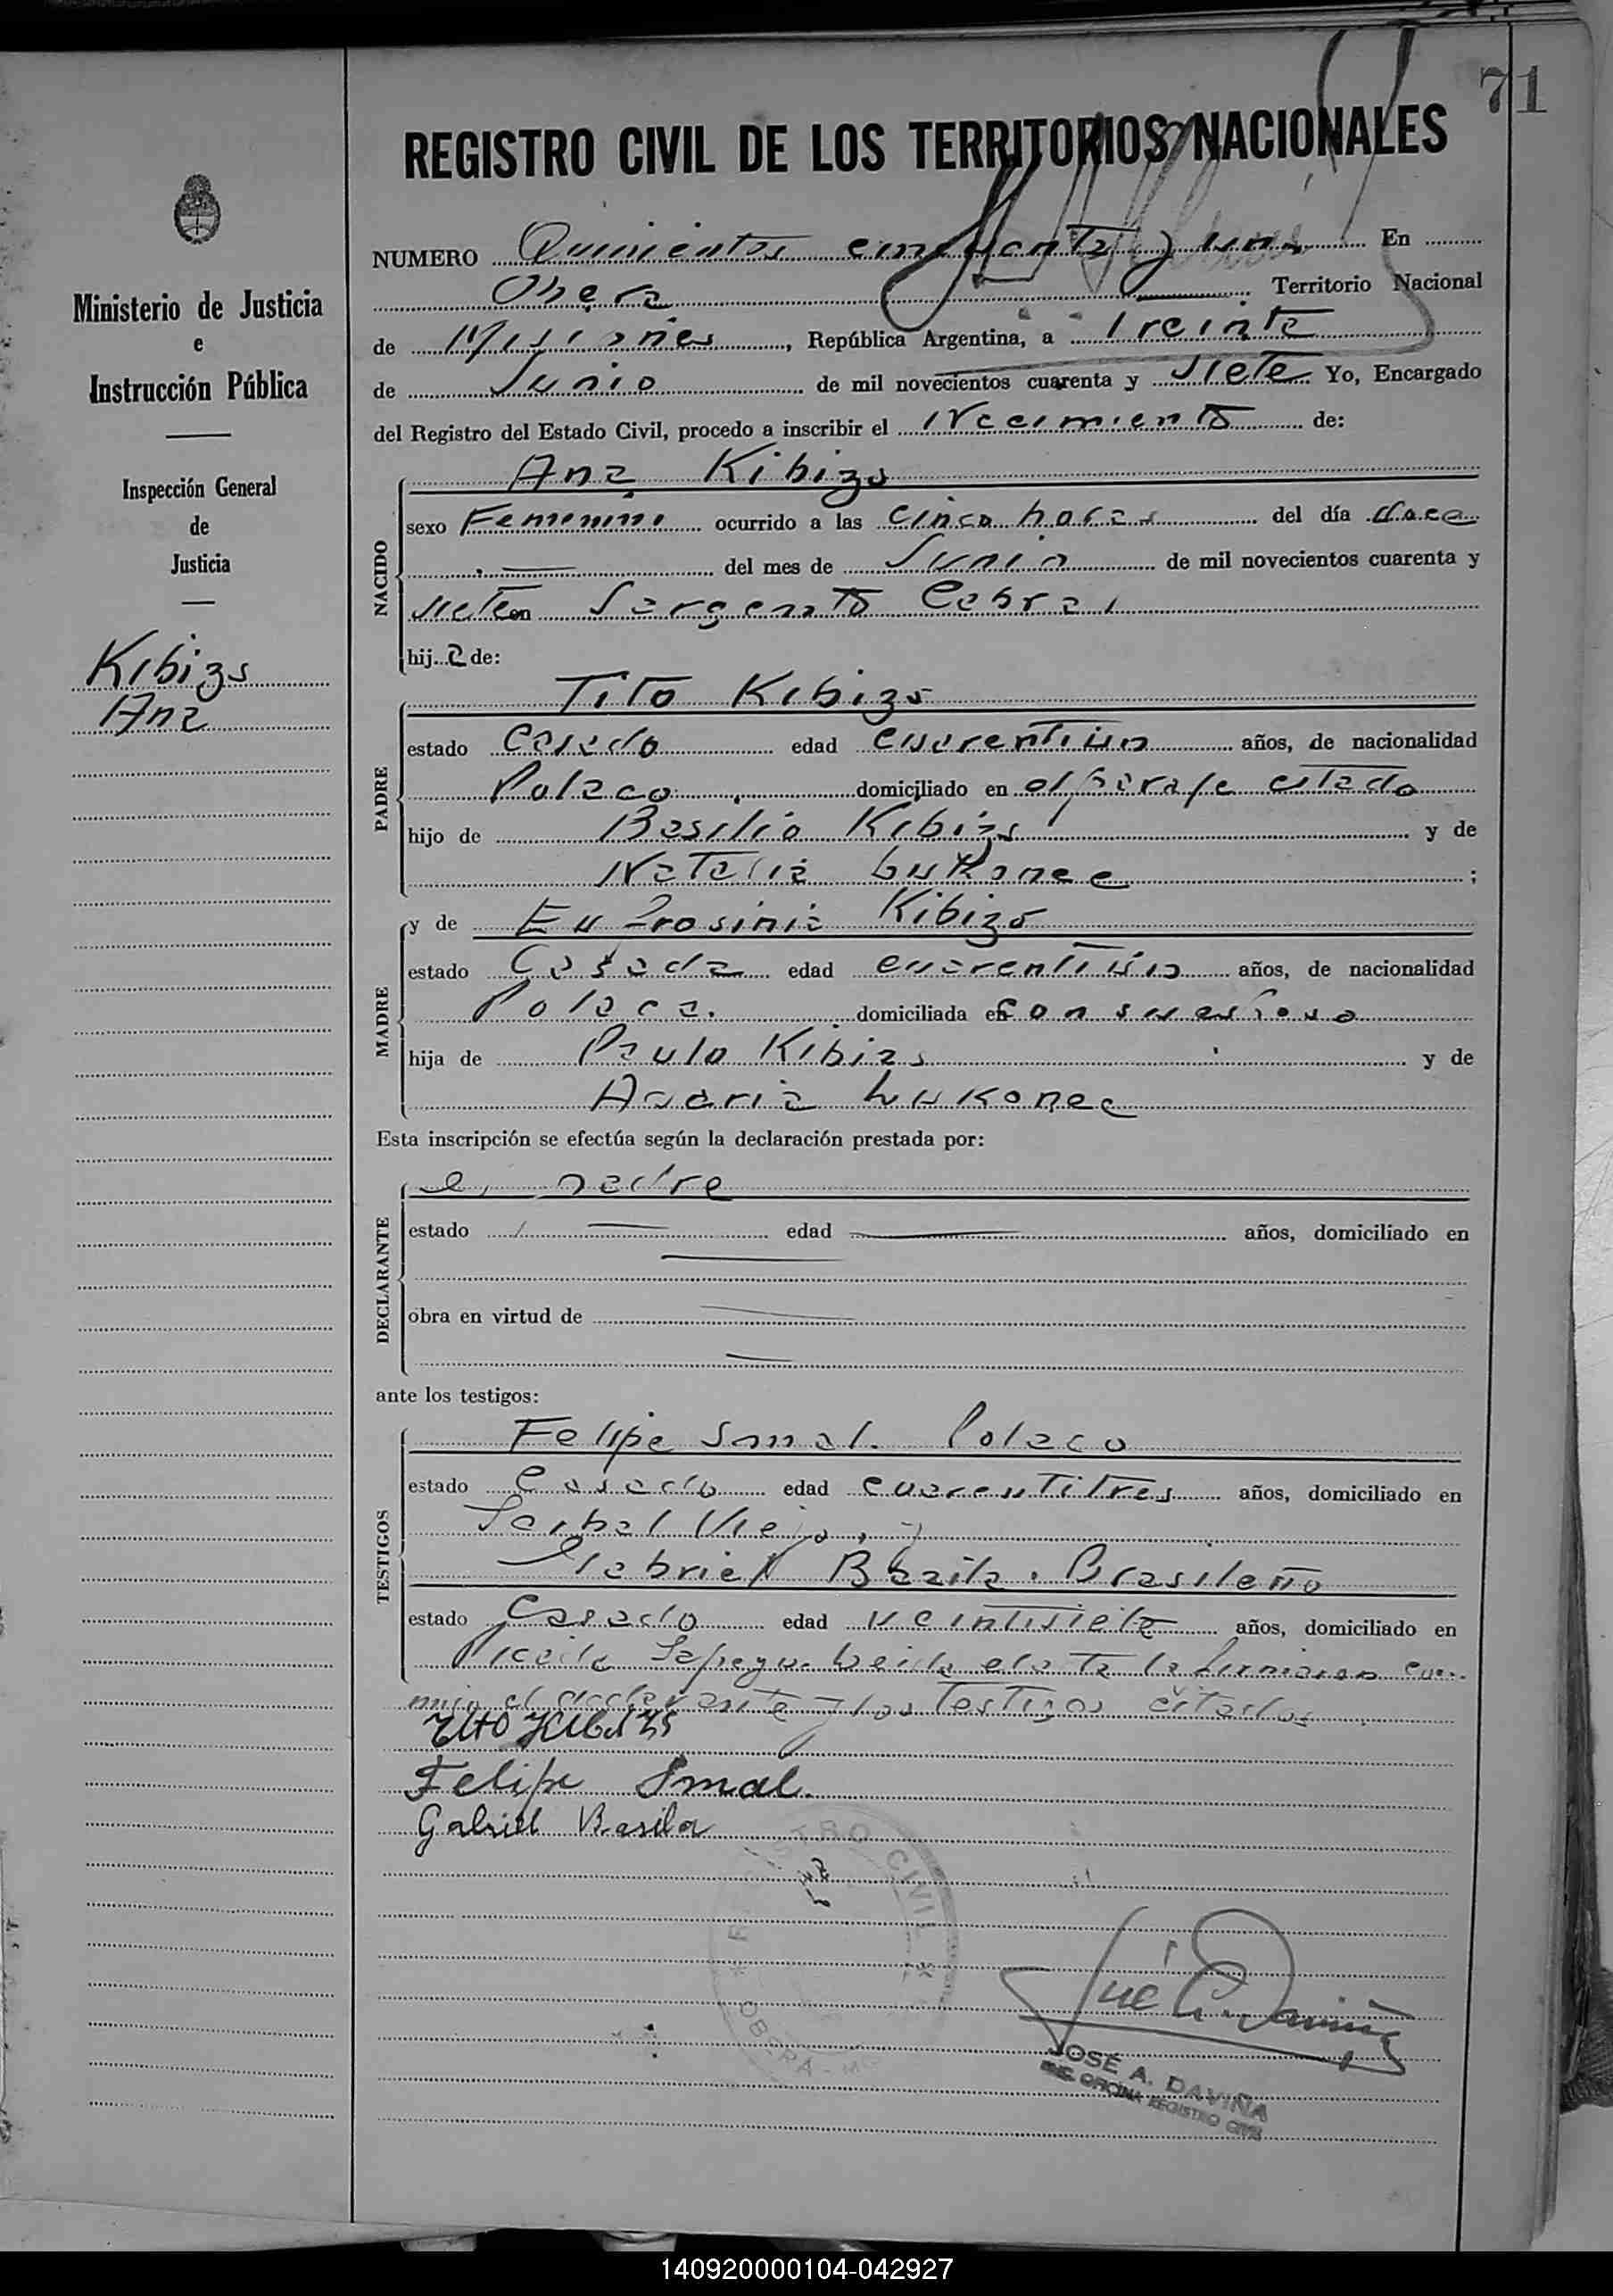 71
REGISTRO CIVIL DE LOS TERRITORIOS NACIONALES
NUMERO Quinientos cincuenta y uno En
Obera Territorio Nacional
de Misiones, República Argentina, a Treinta
de Junio de mil novecientos cuarenta y siete Yo, Encargado
del Registro del Estado Civil, procedo a inscribir el Nacimiento de:
Ministerio de Justicia
e
Instrucción Pública
Inspección General
de
Justicia
Kibizs
Ana
NACIDO
Ana Kibizs
sexo Femenino ocurrido a las cinco horas del día doce
del mes de Junio de mil novecientos cuarenta y
siete en Sargento Cabral
hija de:
PADRE
Tito Kibizs
estado Casado edad cuarentiun años, de nacionalidad
Polaco domiciliado en el paraje citado
hijo de Basilio Kibizs y de
Natalia Lukonec;
MADRE
y de Eufrosinia Kibizs
estado Casada edad cuarentiún años, de nacionalidad
Polaca. domiciliada en con su esposo
hija de Paulo Kibizs y de
Lukonec
Esta inscripción se efectúa según la declaración prestada por:
DECLARANTE
el padre
estado edad años, domiciliado en
obra en virtud de
ante los testigos:
TESTIGOS
Felipe Smal. Polaco
estado Casado edad cuarentitres años, domiciliado en
Viejo, y
Gabriel Brasileño
estado Casado edad veintisiete años, domiciliado en
Picada Leida esta la firmaron con-
migo el declarante y los testigos citados
Felipe Smal.
Gabriel
REGISTRO CIVIL
OBERA
JOSÉ A. DAVIÑA
OFICINA REGISTRO CIVIL
140920000104-042927